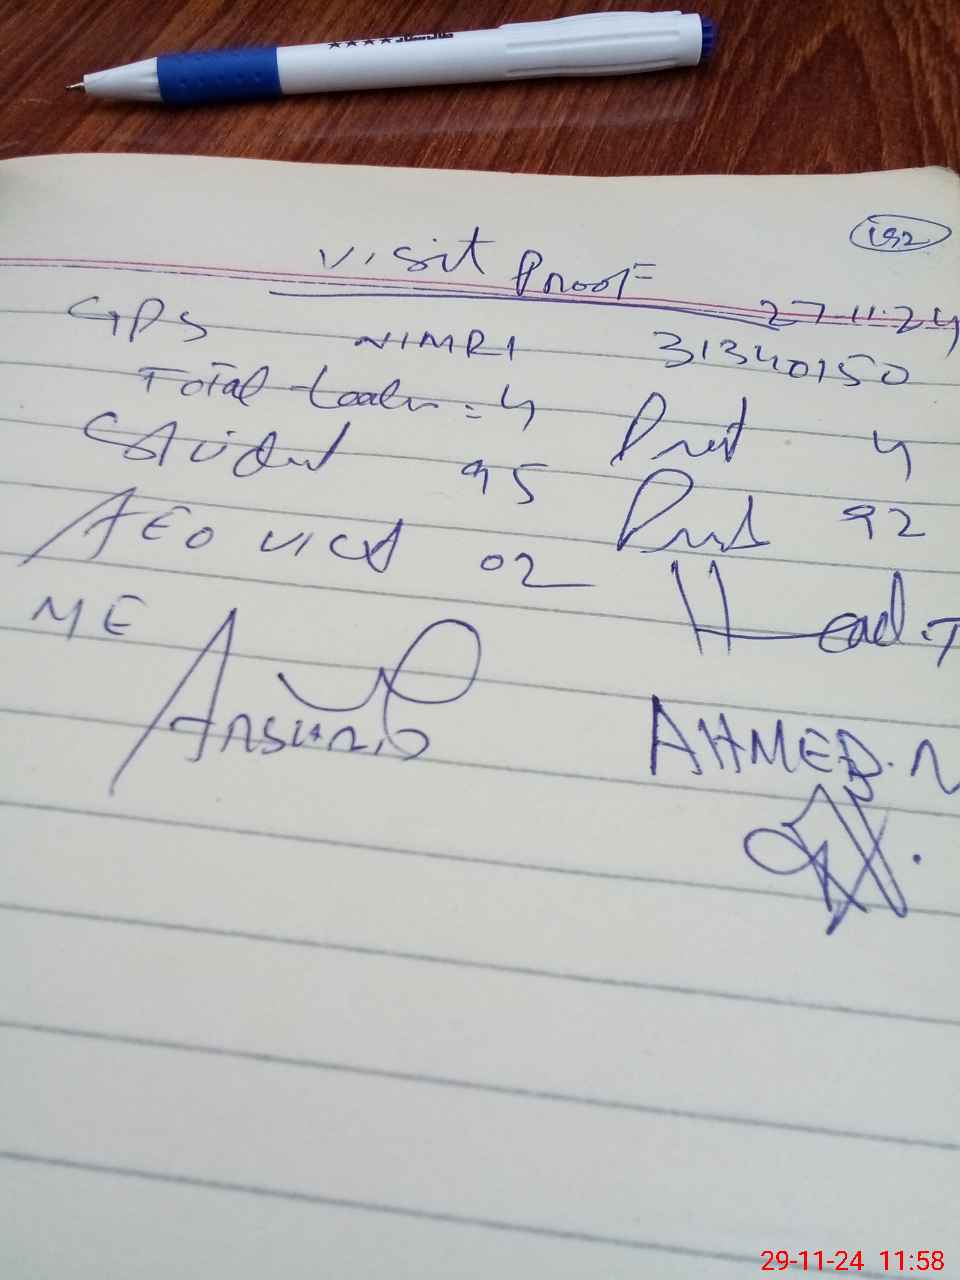 ★★★★
192
Visit Proof
27-11-24
GPS NIMRI 31340150
Total = 4 4
Student 95 92
AEO visit 02
ME Head.T
AHMED.N
29-11-24 11:58